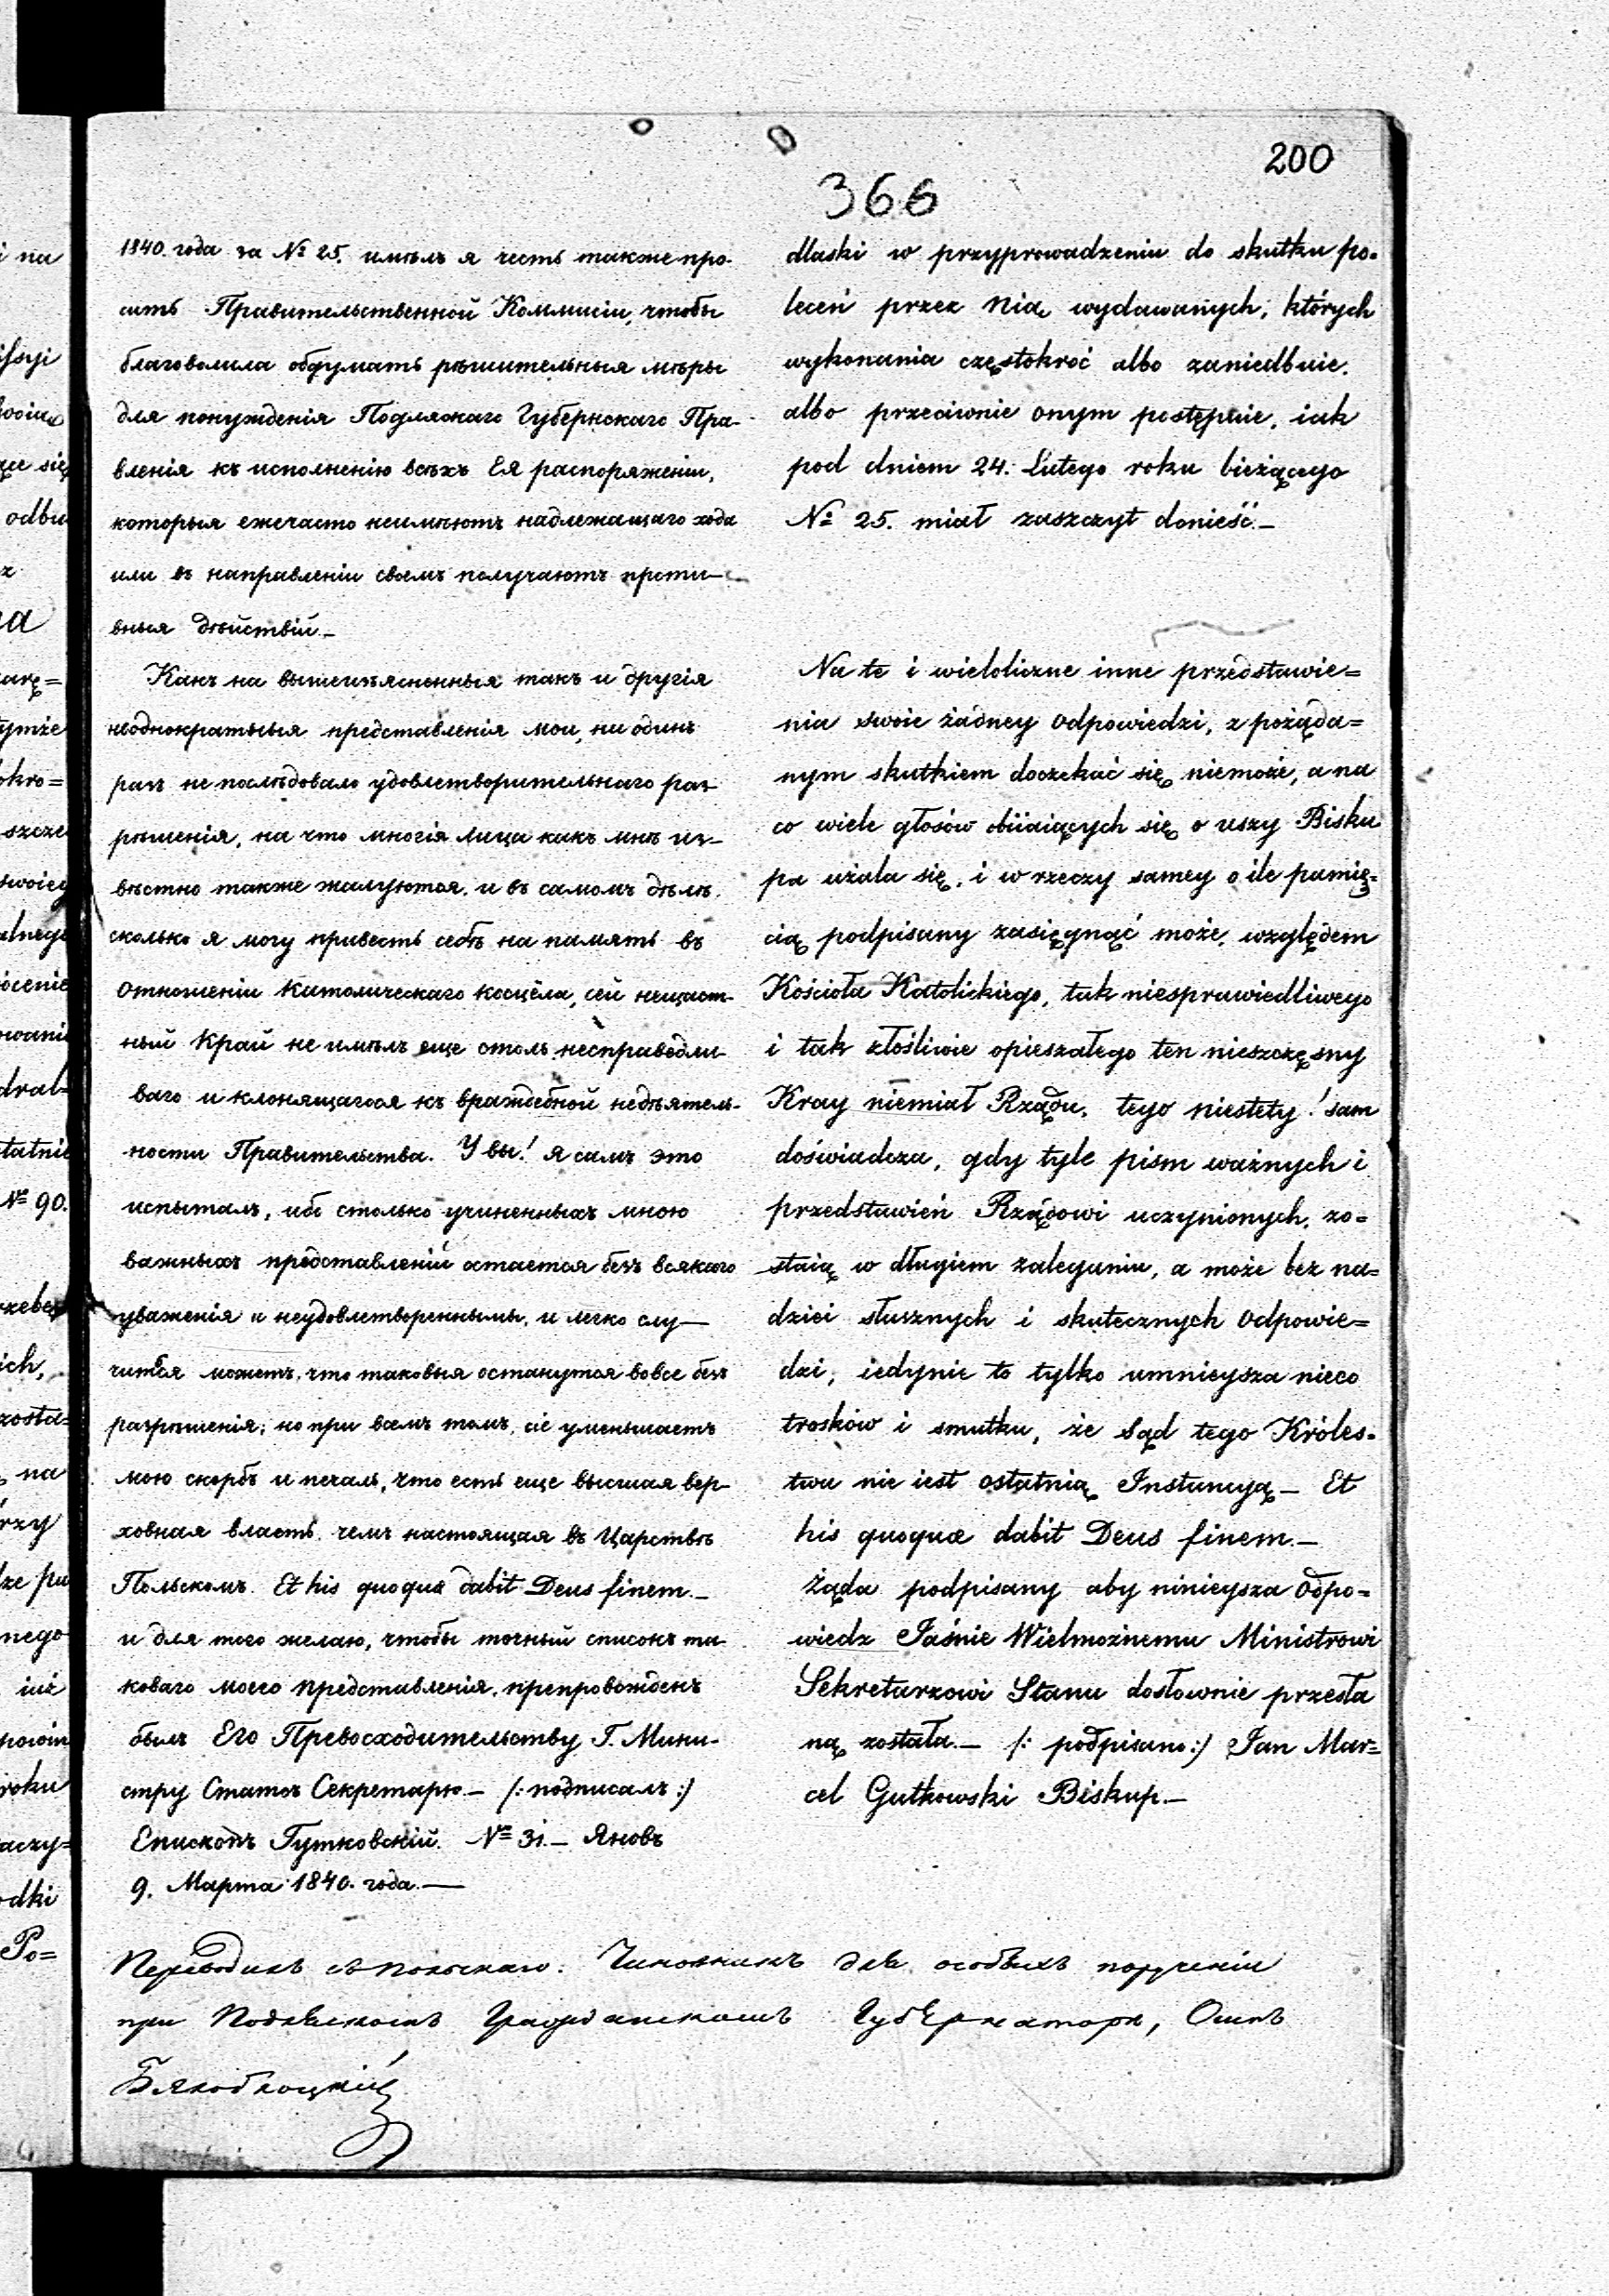 200
366
1840. года за № 25. имѣлъ я честь также про-
сить Правительственной Коммисіи, чтобы
благоволила обдумать рѣшительныя мѣры
для понужденія Подляскаго Губернскаго Пра-
вленія къ исполненію всѣхъ Ея распоряженіи,
которыя ежечасто неимѣютъ надлежащаго хода
или въ направленіи своемъ получаютъ проти-
вныя дѣйствій.—
Какъ на вышеизъясненныя такъ и другія
неоднократныя представленія мои, ни одинъ
разъ не послѣдовало удовлетворительнаго раз-
рѣшенія, на что многія лица какъ мнѣ из-
вѣстно также жалуются. и въ самомъ дѣлѣ,
сколько я могу привесть себѣ на память въ
отношеніи Католическаго косцёла, сей нещаст-
ный Край не имѣлъ еще столь несправедли-
ваго и клонящагося къ враждебной недѣятель-
ности Правительства. Увы! я самъ это
испыталъ, ибо столько учиненныхъ мною
важныхъ представленій остается безъ всякаго
уваженія и неудовлетворенными, и легко слу-
читься можетъ, что таковыя останутся вовсе безъ
разрѣшенія; но при всемъ томъ, сіе уменьшаетъ
мою скорбь и печаль, что есть еще высшая вер-
ховная власть чемъ настоящая въ Царствѣ
Польскомъ. Et his quoque dabit Deus finem.—
и для того желаю, чтобы точный списокъ та-
коваго моего представленія, препровожденъ
былъ Его Превосходительству Г. Мини-
стру Статсъ Секретарю.— /: подписалъ :/
Епископъ Гутковскій. № 31.— Яновъ
9. Марта 1840. года.—
dlaski w przyprowadzeniu do skutku po-
leceń przez Nią wydawanych, których
wykonania częstokroć albo zaniedbuie,
albo przeciwnie onym postępuie, iak
pod dniem 24. Lutego roku bieżącego
№ 25. miał zaszczyt donieść.—
Na te i wieloliczne inne przedstawie=
nia swoie żadney odpowiedzi, z pożąda=
nym skutkiem doczekać się niemoże, a na
co wiele głosów obiiaiących się o uszy Bisku
pa użala się, i w rzeczy samey o ile pamię=
cią podpisany zasięgnąć może, względem
Kościoła Katolickiego, tak niesprawiedliwego
i tak złośliwie opieszałego ten nieszczęsny
Kray niemiał Rządu, tego niestety! sam
doświadcza, gdy tyle pism ważnych i
przedstawień Rządowi uczynionych, zo=
staią w długiem zaleganiu, a może bez na=
dziei słusznych i skutecznych odpowie=
dzi, iedynie to tylko umnieysza nieco
trosków i smutku, że Sąd tego Króles=
twa nie iest ostatnią Instancyą — Et
his quoquæ dabit Deus finem.—
Żąda podpisany aby ninieysza Odpo=
wiedz Jaśnie Wielmożnemu Ministrowi
Sekretarzowi Stanu dosłownie przesła
ną została.— /: podpisano :/ Jan Mar=
cel Gutkowski Biskup.—
Переводилъ съ польскаго. Чиновникъ для особыхъ порученіи
при Подляскомъ Гражданскомъ Губернаторѣ,